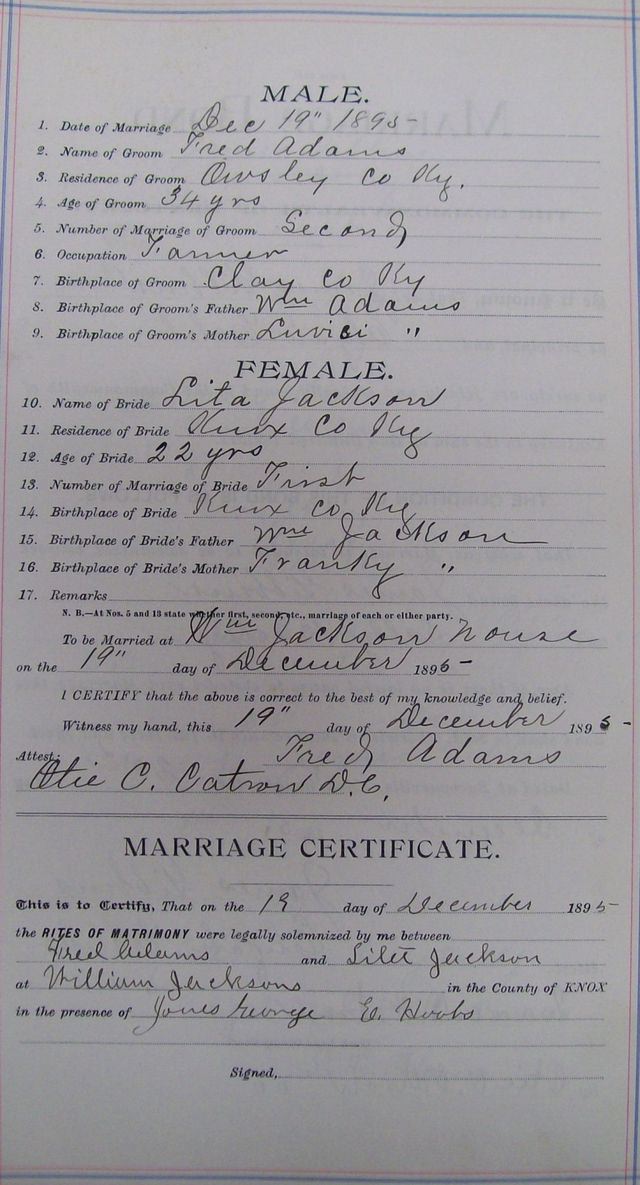 MALE.
1. Date of Marriage Dec 19" 1895
2. Name of Groom Fred Adams
3. Residence of Groom Owsley Co Ky.
4. Age of Groom 34 yrs
5. Number of Marriage of Groom Second
6. Occupation Farmer
7. Birthplace of Groom Clay Co Ky
8. Birthplace of Groom's Father Wm Adams
9. Birthplace of Groom's Mother Luvici "
FEMALE.
10. Name of Bride Lita Jackson
11. Residence of Bride Knox Co Ky
12. Age of Bride 22 yrs
13. Number of Marriage of Bride First
14. Birthplace of Bride Knox Co Ky
15. Birthplace of Bride's Father Wm Jackson
16. Birthplace of Bride's Mother Franky "
17. Remarks
N. B.—At Nos. 5 and 13 state whether first, second, etc., marriage of each or either party.
To be Married at Wm Jackson house
on the 19" day of December 1895
I CERTIFY that the above is correct to the best of my knowledge and belief.
Witness my hand, this 19" day of December 1895
Fred Adams
Attest:
Otie C. Catron D.C.
MARRIAGE CERTIFICATE.
This is to Certify, That on the 19 day of December 1895
the RITES OF MATRIMONY were legally solemnized by me between
Fred Adams and Jackson
at William Jacksons in the County of KNOX
in the presence of Jones George E.
Signed,